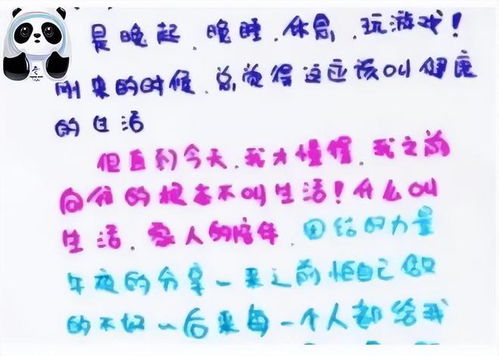 是晚起、晚睡、休息、玩游戏!
刚来的时候,总觉得这应该叫健康
的生活
但直到今天,我才懂得,我之前
向往的根本不叫生活!什么叫
生活,家人的陪伴,团结的力量
年夜的分享一来之前怕自己做
的不好一后来每一个人都给我